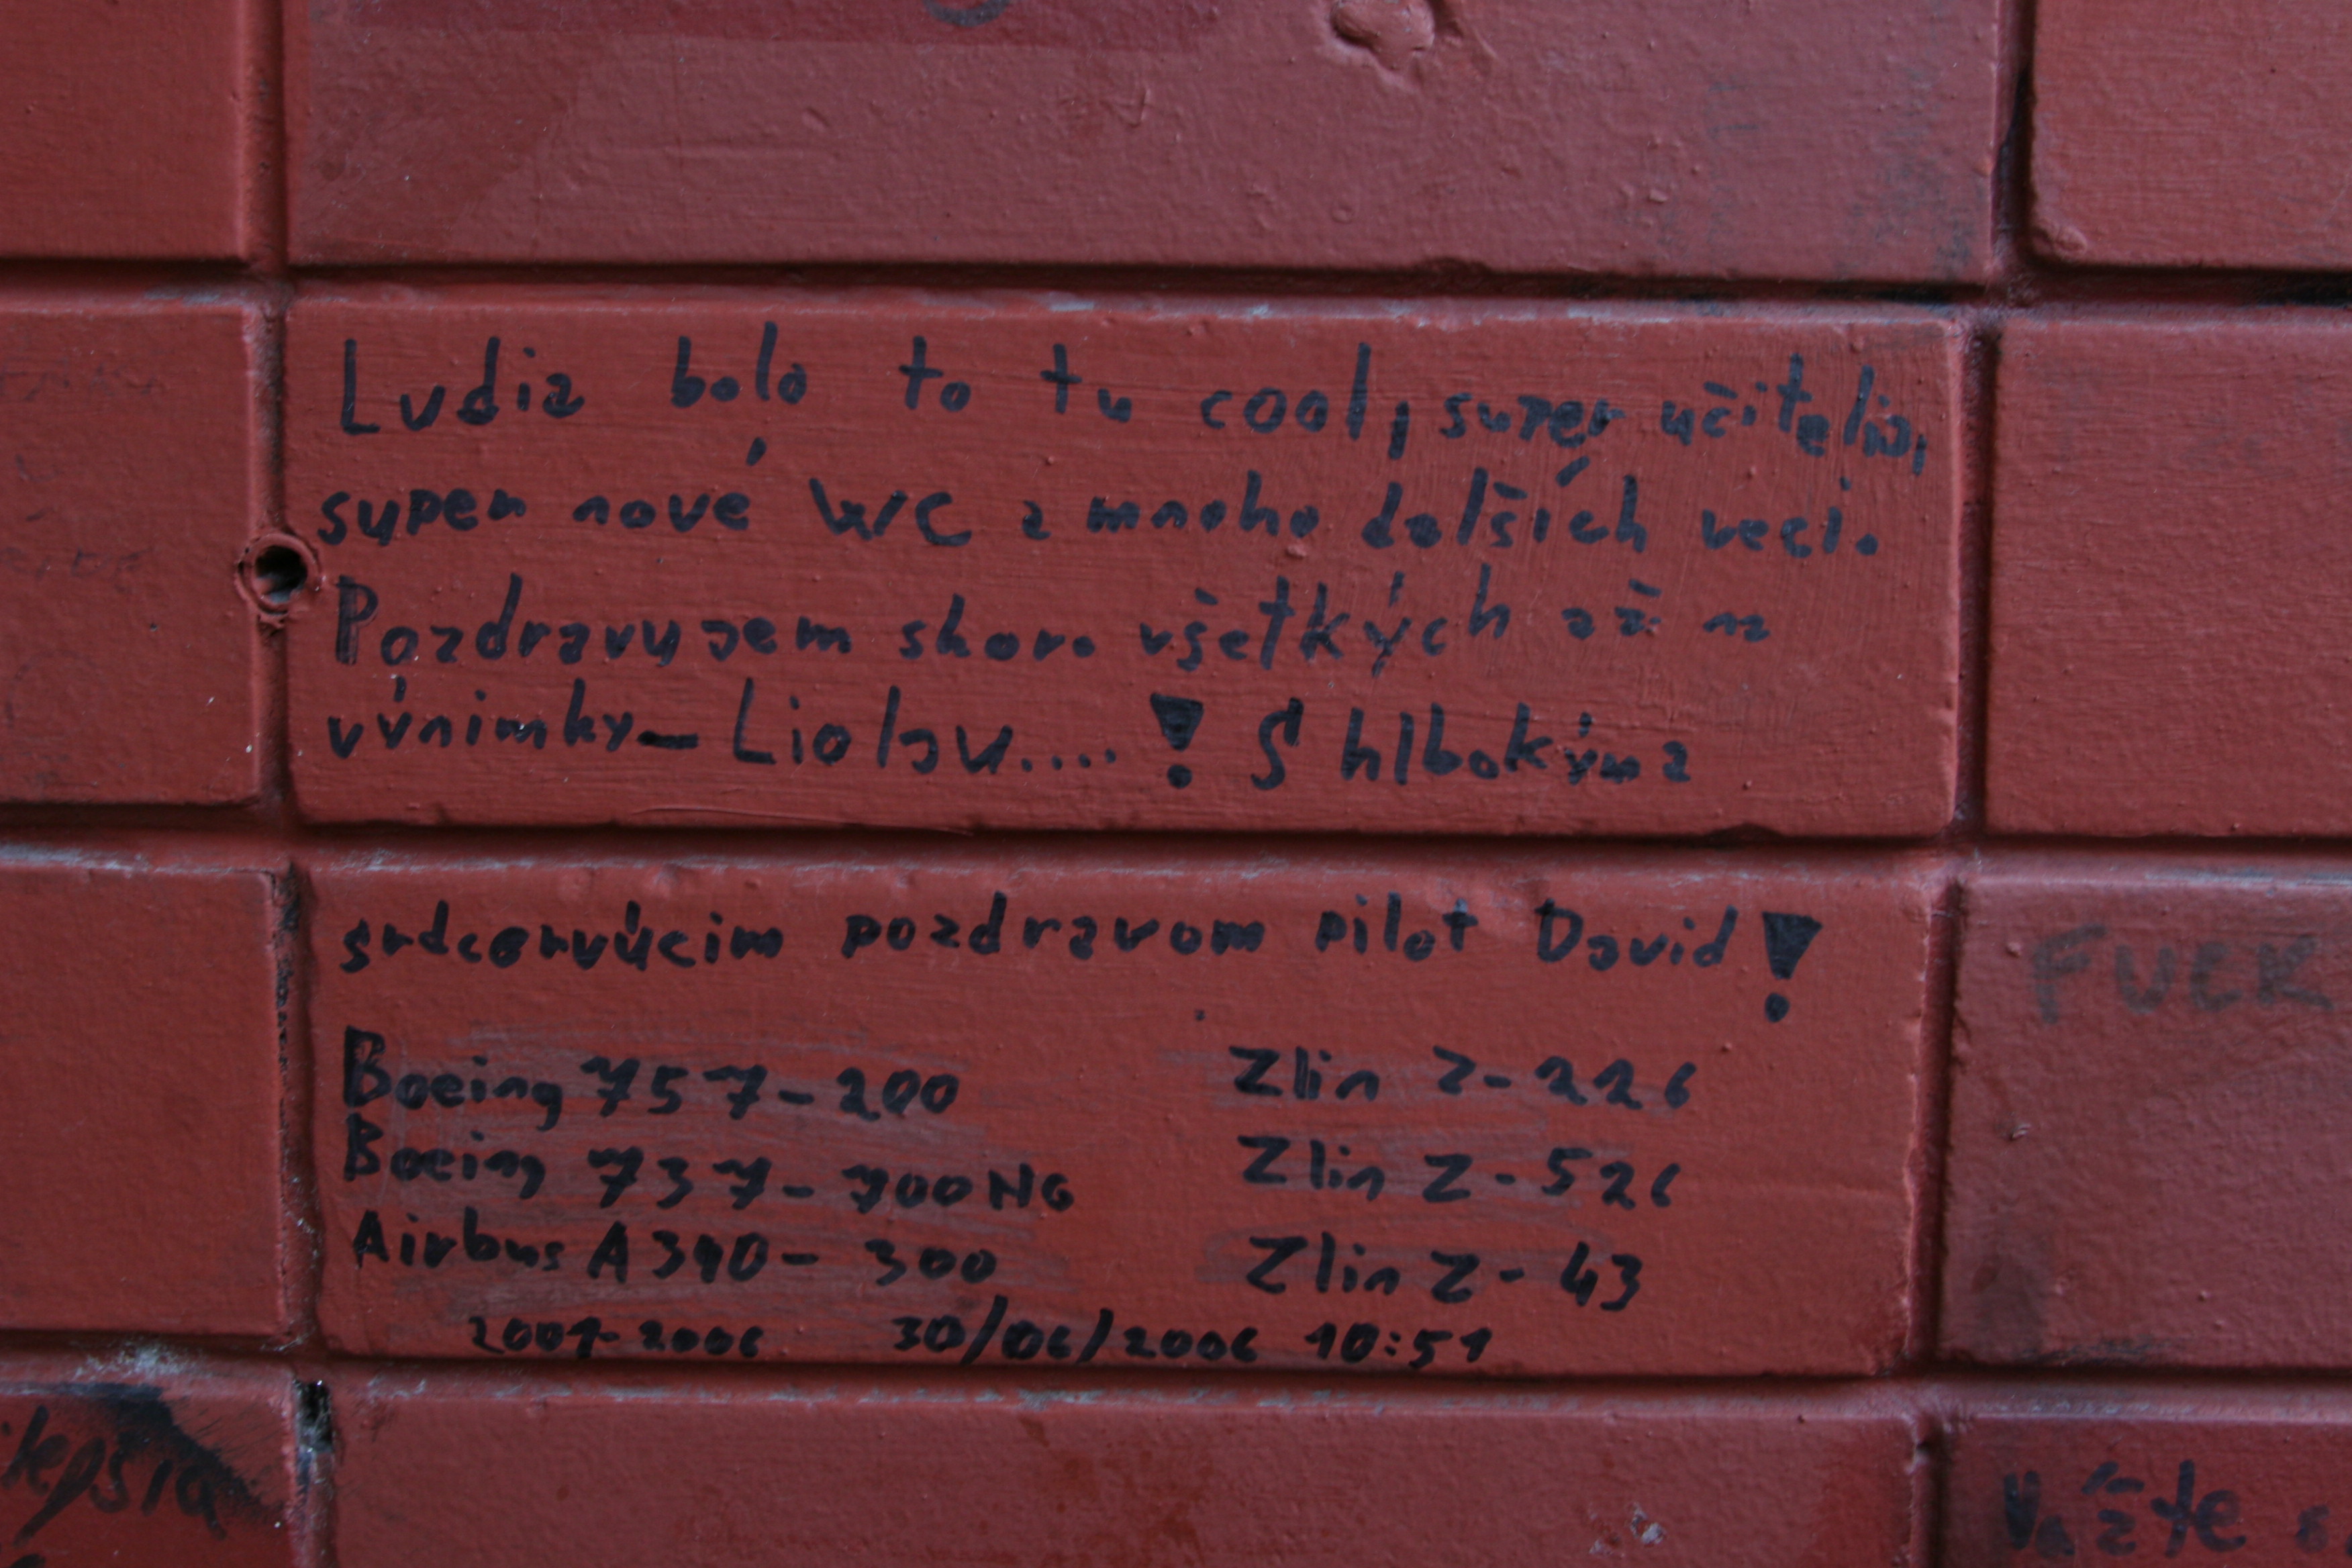 Ludia bolo to tu cool, super učitelia,
super nové WC a mnoho dalších veci.
Pozdravujem skoro všetkých až na
výnimky - Liolau....! S hlbokým a
srdcervúcim pozdravom pilot David!
Boeing 757-200 Zlin Z-226
Boeing 737-700NG Zlin Z-526
Airbus A340-300 Zlin Z-43
2001-2006 30/06/2006 10:51
FUCK
Vážte s